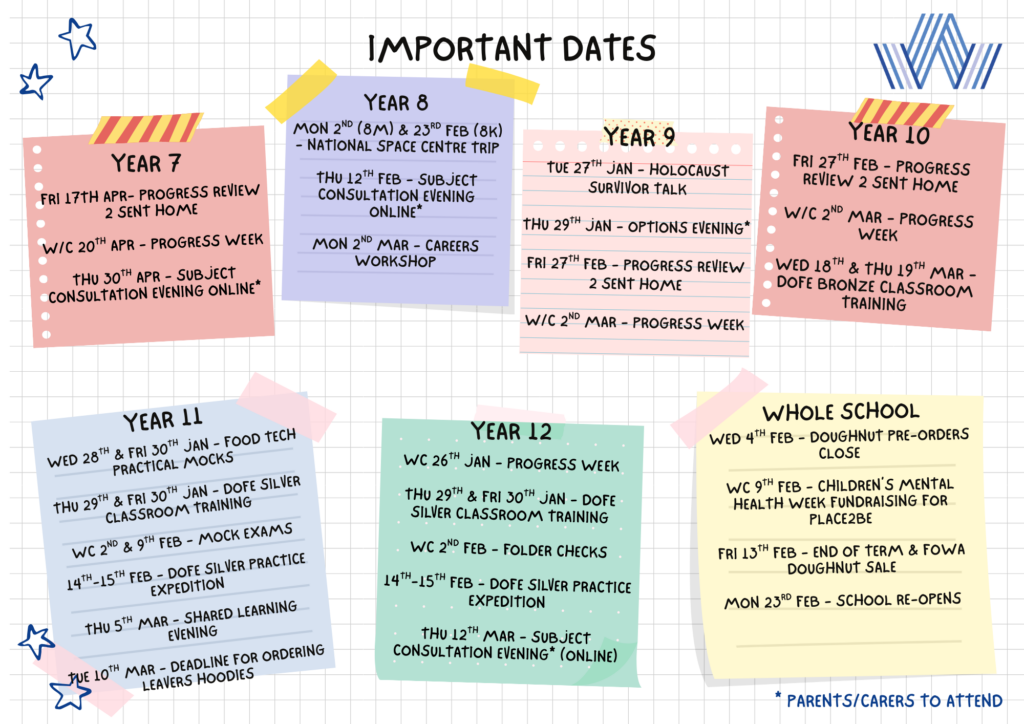 IMPORTANT DATES
YEAR 7
FRI 17TH APR- PROGRESS REVIEW
2 SENT HOME
W/C 20TH APR - PROGRESS WEEK
THU 30TH APR - SUBJECT
CONSULTATION EVENING ONLINE*
YEAR 8
MON 2ND (8M) & 23RD FEB (8K)
- NATIONAL SPACE CENTRE TRIP
THU 12TH FEB - SUBJECT
CONSULTATION EVENING
ONLINE*
MON 2ND MAR - CAREERS
WORKSHOP
YEAR 9
TUE 27TH JAN - HOLOCAUST
SURVIVOR TALK
THU 29TH JAN - OPTIONS EVENING*
FRI 27TH FEB - PROGRESS REVIEW
2 SENT HOME
W/C 2ND MAR - PROGRESS WEEK
YEAR 10
FRI 27TH FEB - PROGRESS
REVIEW 2 SENT HOME
W/C 2ND MAR - PROGRESS
WEEK
WED 18TH & THU 19TH MAR -
DOFE BRONZE CLASSROOM
TRAINING
YEAR 11
WED 28TH & FRI 30TH JAN - FOOD TECH
PRACTICAL MOCKS
THU 29TH & FRI 30TH JAN - DOFE SILVER
CLASSROOM TRAINING
WC 2ND & 9TH FEB - MOCK EXAMS
14TH-15TH FEB - DOFE SILVER PRACTICE
EXPEDITION
THU 5TH MAR - SHARED LEARNING
EVENING
TUE 10TH MAR - DEADLINE FOR ORDERING
LEAVERS HOODIES
YEAR 12
WC 26TH JAN - PROGRESS WEEK
THU 29TH & FRI 30TH JAN - DOFE
SILVER CLASSROOM TRAINING
WC 2ND FEB - FOLDER CHECKS
14TH-15TH FEB - DOFE SILVER PRACTICE
EXPEDITION
THU 12TH MAR - SUBJECT
CONSULTATION EVENING* (ONLINE)
WHOLE SCHOOL
WED 4TH FEB - DOUGHNUT PRE-ORDERS
CLOSE
WC 9TH FEB - CHILDREN'S MENTAL
HEALTH WEEK FUNDRAISING FOR
PLACE2BE
FRI 13TH FEB - END OF TERM & FOWA
DOUGHNUT SALE
MON 23RD FEB - SCHOOL RE-OPENS
* PARENTS/CARERS TO ATTEND